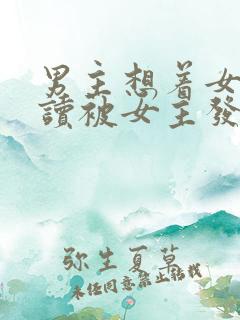 男主想着女
讀被女主發
弥生夏草
未经同意禁止转载